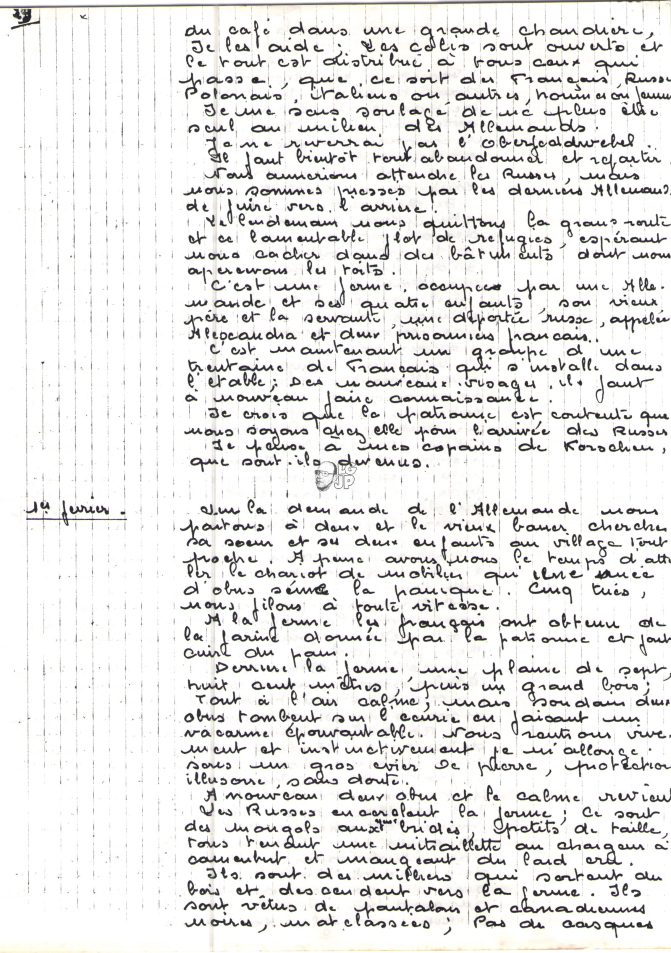 29
du café dans une grande chaudière,
Je les aide ; Les colis sont ouverts et
le tout est distribué à tous ceux qui
passe, que ce soit des Français, Russe
Polonais, italiens ou autres, hommes ou femme
Je me sens soulagé de ne plus être
seul au milieu des Allemands.
Je ne reverrai pas l'Oberfeldwebel.
Il faut bientôt tout abandonner et repartir
Nous aimerions attendre les Russes, mais
nous sommes pressés par les derniers Allemands
de fuire vers l'arrière.
Le lendemain nous quittons la grans route
et ce lamentable flot de réfugiés, espérant
nous cacher dans des bâtiments dont nous
apercevons les toits.
C'est une ferme, occupée par une Alle-
mande et ses quatre enfants, son vieux
père et la servante, une déportée russe, appelée
Alexandra et deux prisonniers français.
C'est maintenant un groupe d'une
trentaine de Français qui s'installe dans
l'étable ; Des nouveaux visages, il faut
à nouveau faire connaissance.
Je crois que la patronne est contente que
nous soyons chez elle pour l'arrivée des Russes
Je pense à mes copains de Korschen,
que sont-ils devenus.
LG
JP
1er février.
Sur la demande de l'Allemande nous
partons à deux et le vieux bauer chercher
sa soeur et ses deux enfants au village tout
proche. A peine avons nous le temps d'atte
ler le chariot de mobilier qu'une nuée
d'obus sème la panique. Cinq tués,
nous filons à toute vitesse.
A la ferme les français ont obtenu de
la farine donnée par la patronne et font
cuire du pain.
Derrière la ferme, une plaine de sept,
huit cent mètres, puis un grand bois ;
Tout à l'air calme ; mais soudain deux
obus tombent sur l'écurie en faisant un
vacarme épouvantable. Nous rentrons vive-
ment et instinctivement je m'allonge
sous un gros évier de pierre, protection
illusoire, sans doute.
A nouveau deux obus et le calme revient
Les Russes encerclent la ferme ; Ce sont
des mongols aux yeux bridés, petits de taille,
tous tenant une mitraillette au chargeur à
camembert et mangeant du lard cru.
Ils sont des milliers qui sortent du
bois et descendent vers la ferme. Ils
sont vêtus de pantalons et canadiennes
noires, matelassées ; Pas de casques